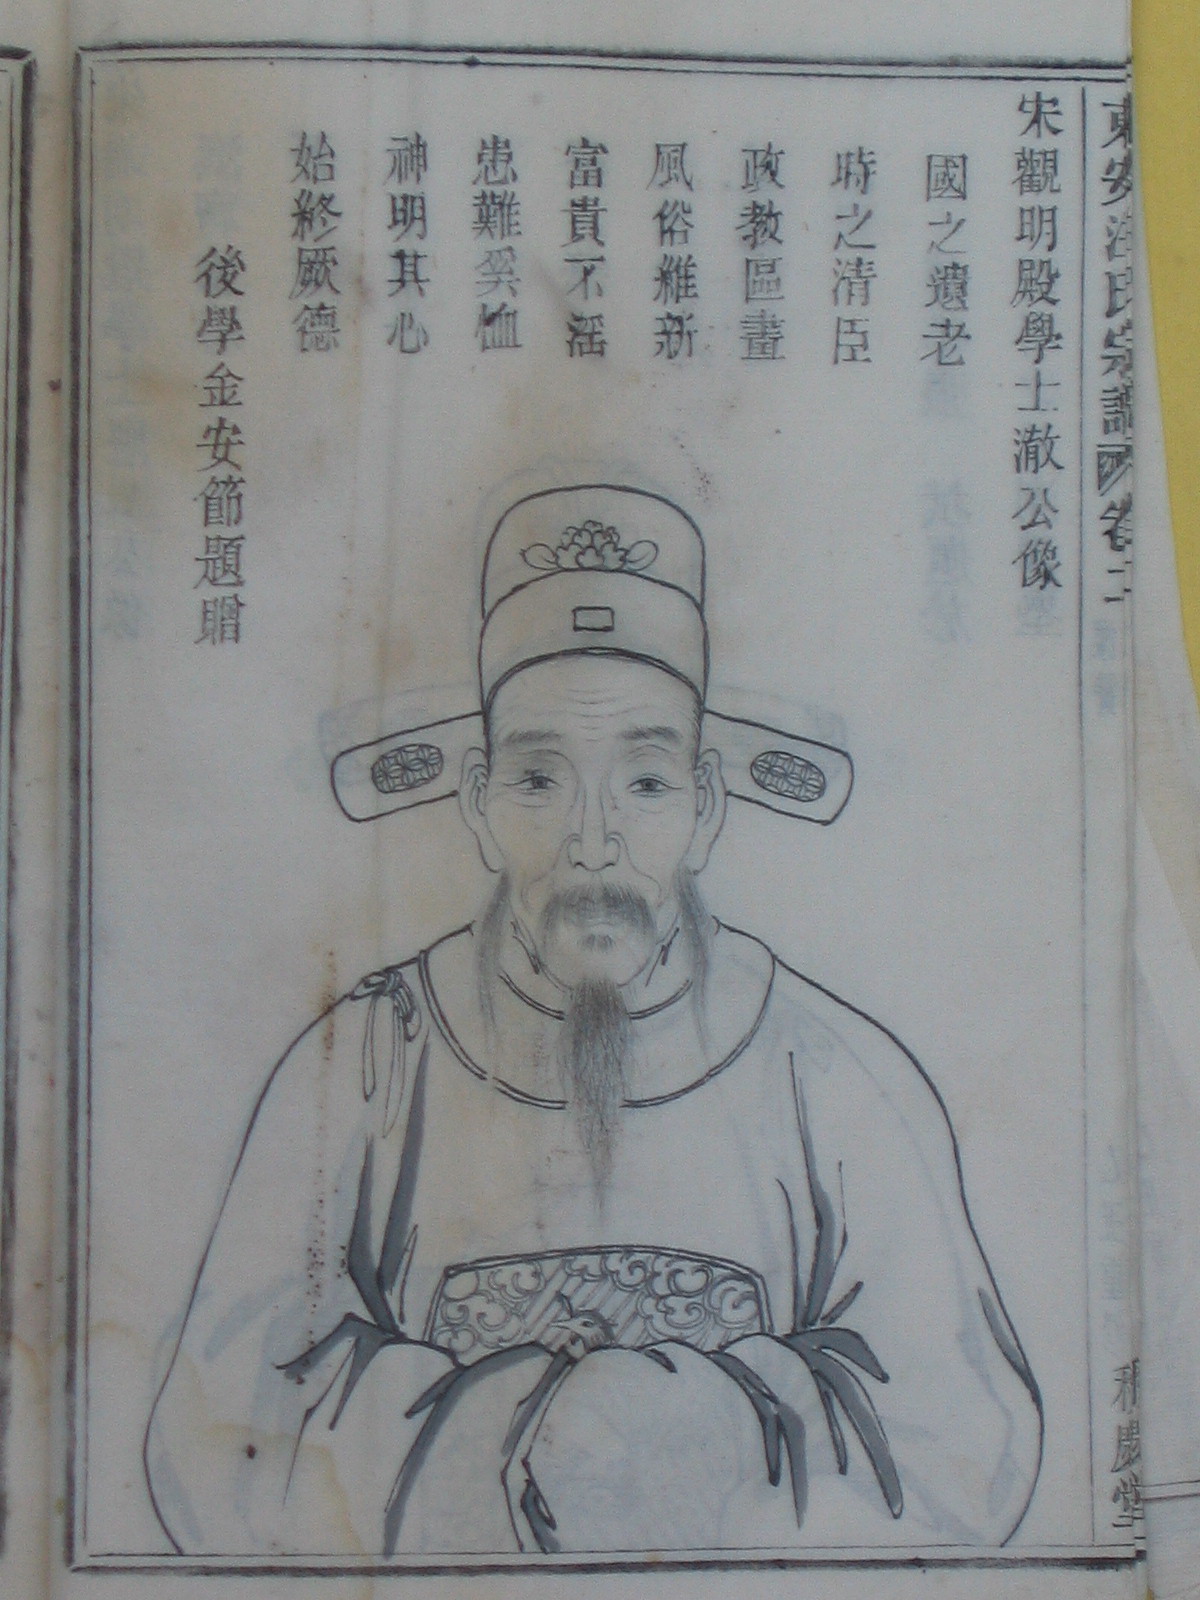 東安汪氏宗譜 卷二
宋觀明殿學士澈公像
國之遺老
時之清臣
政教區畫
風俗維新
富貴不滛
患難奚恤
神明其心
始終厥德
後學金安節題贈